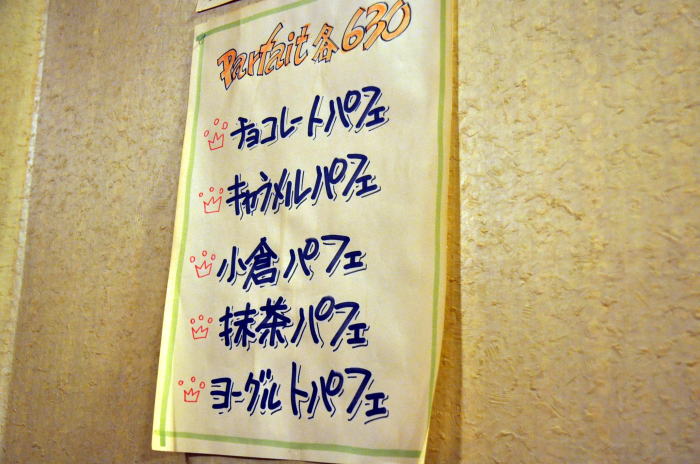 Parfait 各630
チョコレートパフェ
キャラメルパフェ
小倉パフェ
抹茶パフェ
ヨーグルトパフェ